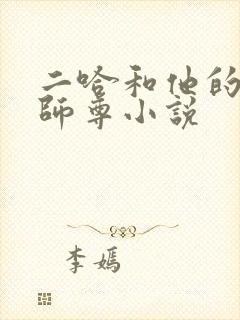 二哈和他的
師尊小说
李嫣